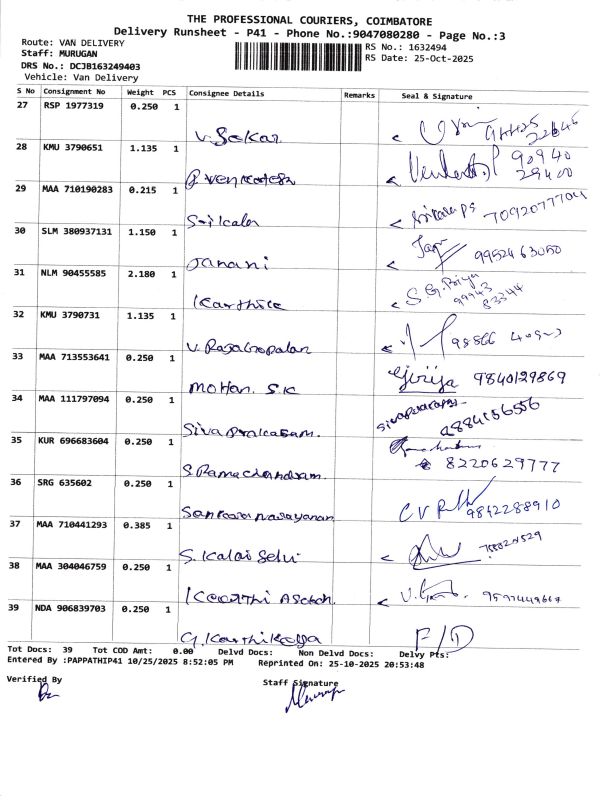 THE PROFESSIONAL COURIERS, COIMBATORE
Delivery Runsheet - P41 - Phone No.:9047080280 - Page No.:3
Route: VAN DELIVERY
Staff: MURUGAN
DRS No.: DCJB163249403
Vehicle: Van Delivery
RS No.: 1632494
RS Date: 25-Oct-2025
S No Consignment No Weight PCS Consignee Details Remarks Seal & Signature
27 RSP 1977319 0.250 1
V. Sekar
28 KMU 3790651 1.135 1
90940
29400
29 MAA 710190283 0.215 1
Srikala
30 SLM 380937131 1.150 1
Janani 9952463050
31 NLM 90455585 2.180 1
Karthick S.G. Priya
99943
83344
32 KMU 3790731 1.135 1
V. Rajagopalan
33 MAA 713553641 0.250 1
Mohan. S.K Girija 9840129869
34 MAA 111797094 0.250 1
Siva Prakasam. 9884156556
35 KUR 696683604 0.250 1
S. Ramachandran. 8220629777
36 SRG 635602 0.250 1
Sankara narayanan 9842288910
37 MAA 710441293 0.385 1
S. Kalai Selvi
38 MAA 304046759 0.250 1
Keerthi
39 NDA 906839703 0.250 1
G. Karthikeya F/D
Tot Docs: 39 Tot COD Amt: 0.00 Delvd Docs: Non Delvd Docs: Delvy Pts:
Entered By :PAPPATHIP41 10/25/2025 8:52:05 PM Reprinted On: 25-10-2025 20:53:48
Verified By Staff Signature